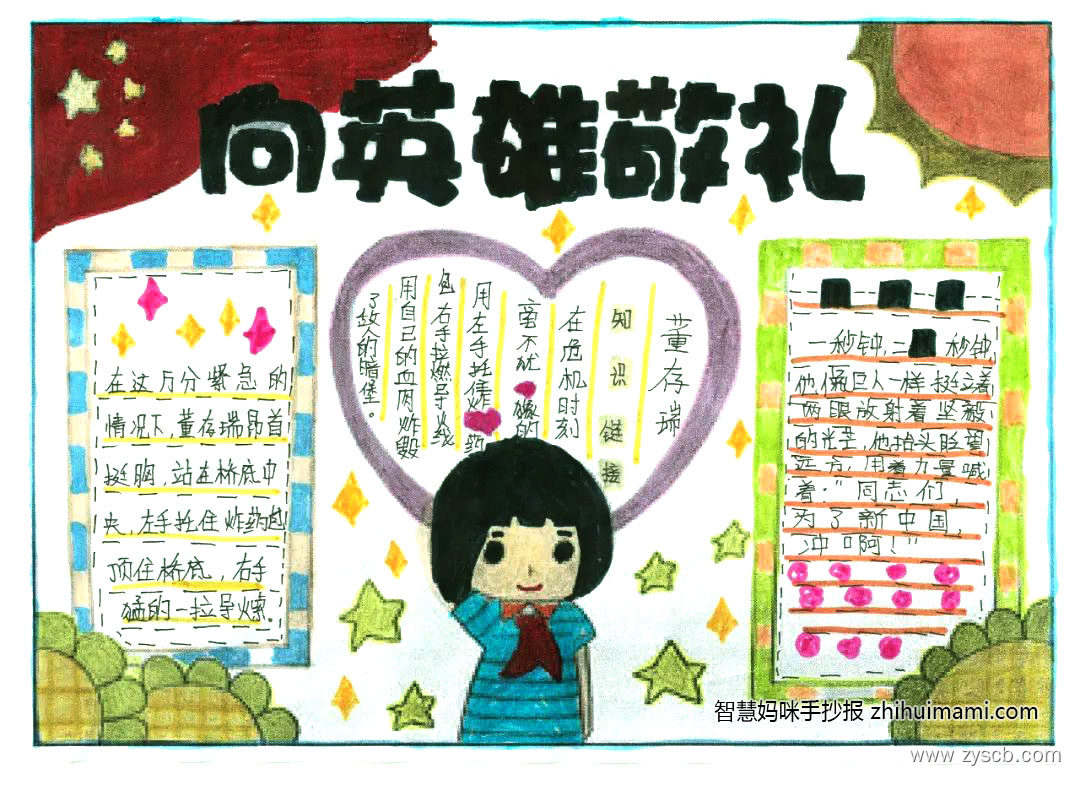 向英雄敬礼
在这万分紧急的
情况下,董存瑞昂首
挺胸,站在桥底中
央,左手托住炸药包
顶住桥底,右手
猛的一拉导火索。
董存瑞
知识链接
在危机时刻
毫不犹 豫的
用左手托住炸 药
包右手拉燃导火线
用自己的血肉炸毁
了敌人的暗堡。
一秒钟,二 秒钟,
他像巨人一样挺立着
两眼放射着坚毅
的光芒,他抬头眺望
远方,用着力量喊
着:“同志们,
为了新中国,
冲啊!”
智慧妈咪手抄报 zhihuimami.com
www.zyscb.com